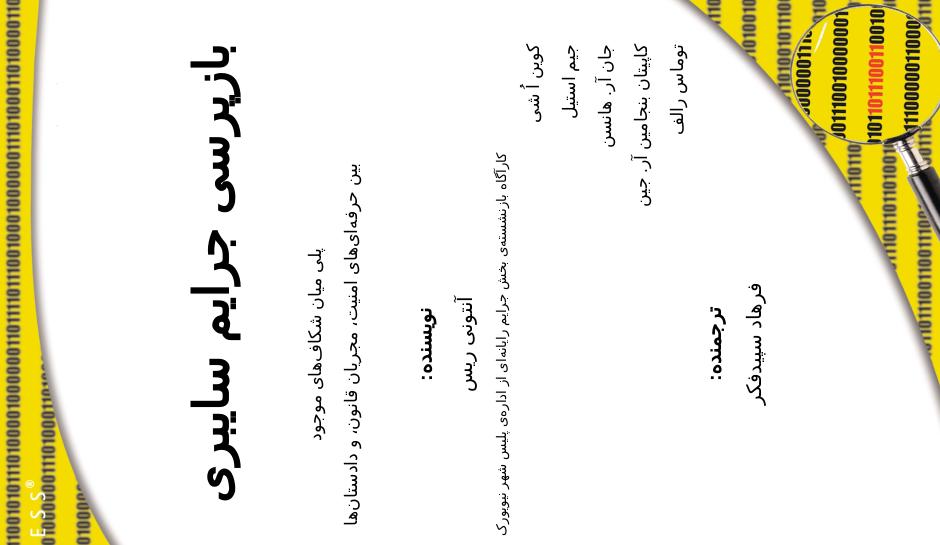 بازپرسی جرایم سایبری
پلی میان شکاف‌های موجود
بین حرفه‌ای‌های امنیت، مجریان قانون، و دادستان‌ها
نویسنده:
آنتونی ریس
کارآگاه بازنشسته‌ی بخش جرایم رایانه‌ای از اداره‌ی پلیس شهر نیویورک
کوین اُ شی
جیم استیل
جان آر. هانسن
کاپیتان بنجامین آر. جین
توماس رالف
ترجمنده:
فرهاد سپیدفکر
E S S®